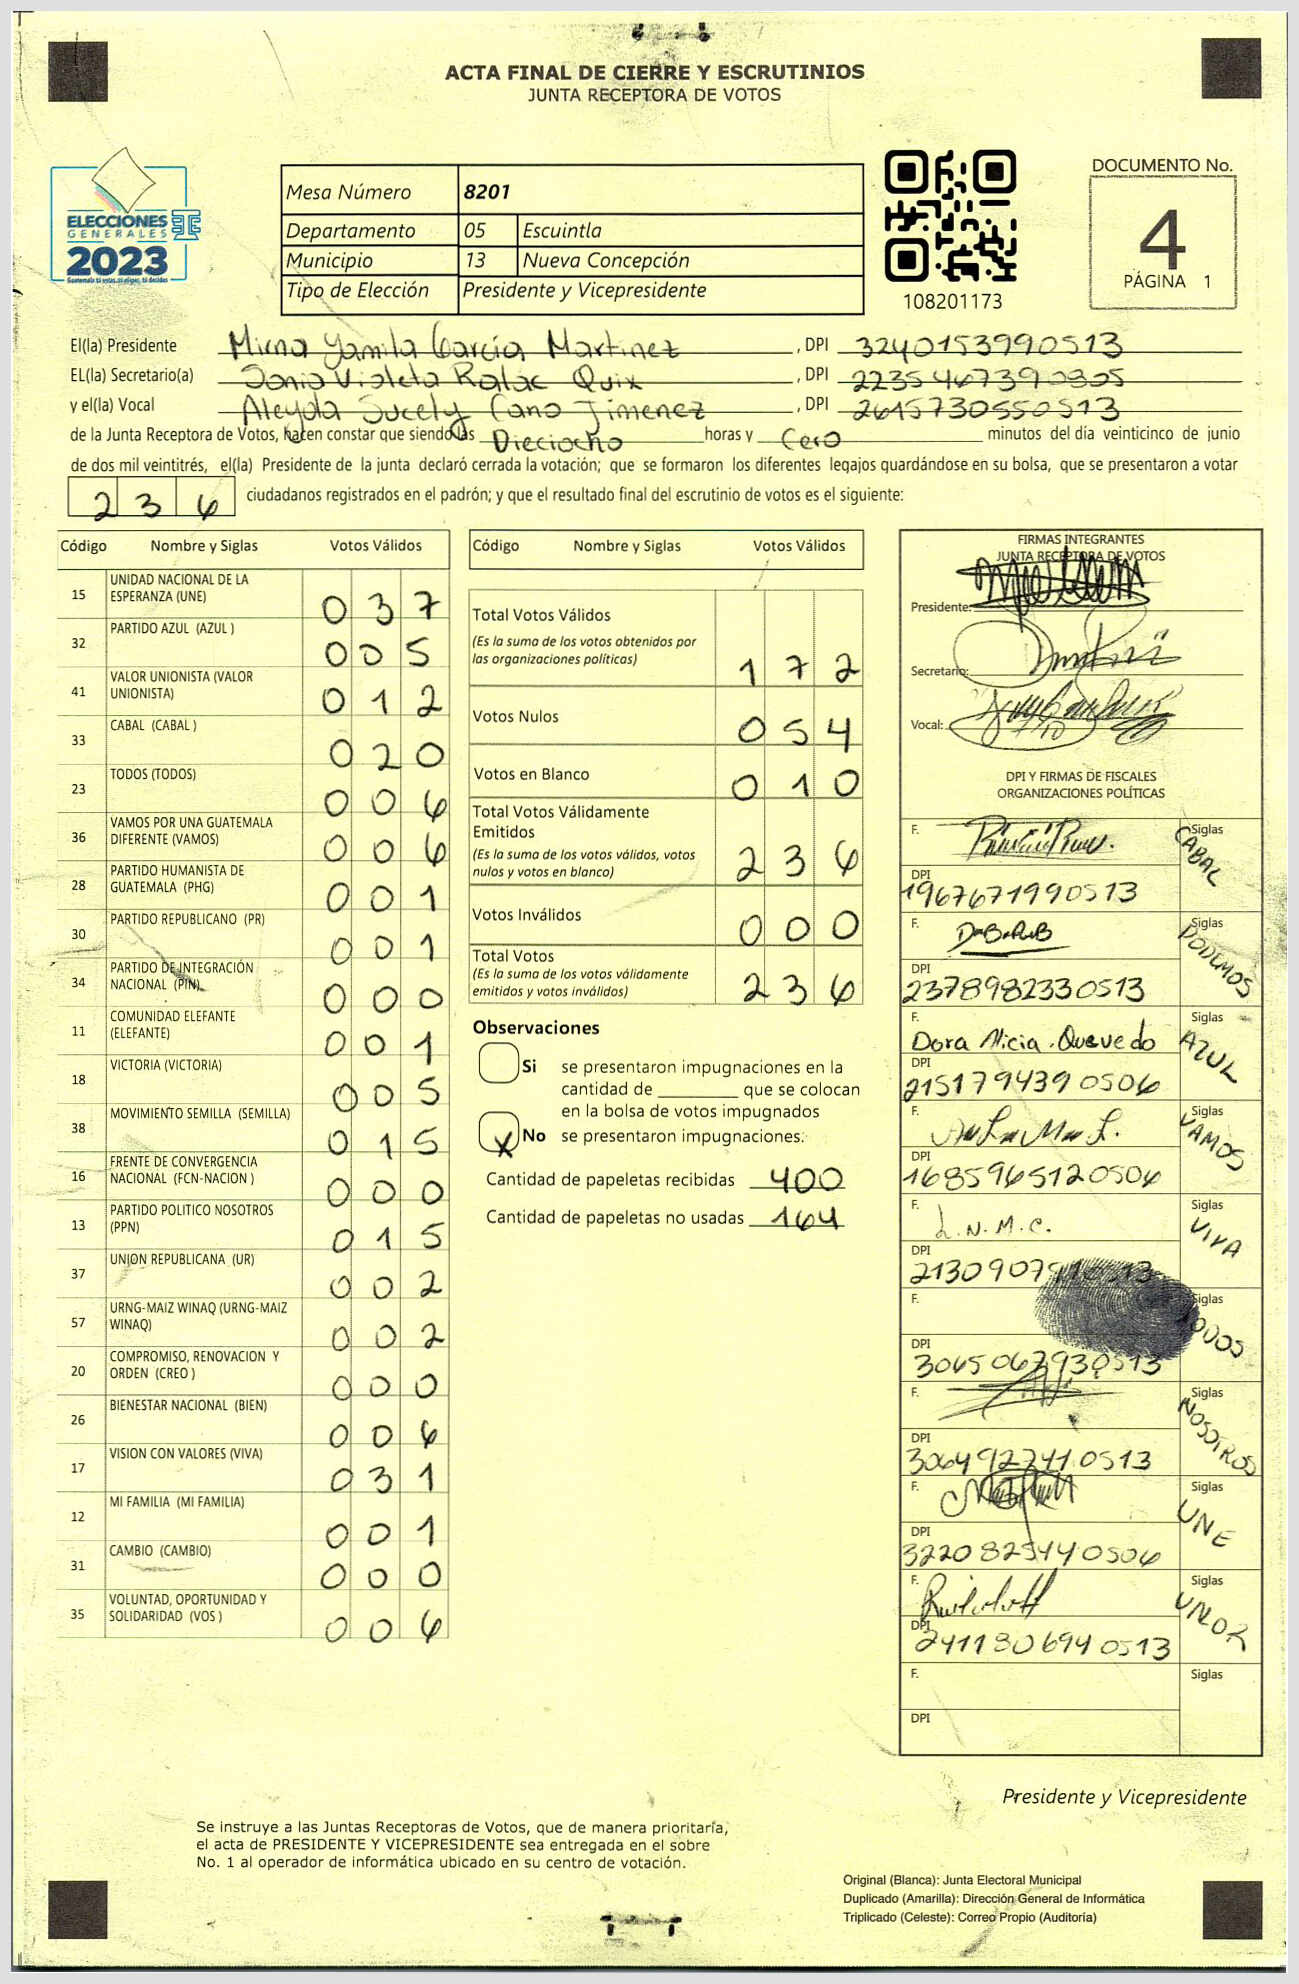 ACTA FINAL DE CIERRE Y ESCRUTINIOS
JUNTA RECEPTORA DE VOTOS
ELECCIONES
GENERALES
2023
Guatemala tú votas, tú eliges, tú decides
Mesa Número 8201
Departamento 05 Escuintla
Municipio 13 Nueva Concepción
Tipo de Elección Presidente y Vicepresidente
108201173
DOCUMENTO No.
4
PÁGINA 1
El(la) Presidente Mirna Yamila García Martinez, DPI 3240153990513
EL(la) Secretario(a) Sonia Violeta Ralac Quix, DPI 2235467390305
y el(la) Vocal Aleyda Sucely Cano Jimenez, DPI 2615730550513
de la Junta Receptora de Votos, hacen constar que siendo las Dieciocho horas y Cero minutos del día veinticinco de junio
de dos mil veintitrés, el(la) Presidente de la junta declaró cerrada la votación; que se formaron los diferentes legajos guardándose en su bolsa, que se presentaron a votar
236 ciudadanos registrados en el padrón; y que el resultado final del escrutinio de votos es el siguiente:
Código Nombre y Siglas Votos Válidos
15 UNIDAD NACIONAL DE LA ESPERANZA (UNE) 037
32 PARTIDO AZUL (AZUL ) 005
41 VALOR UNIONISTA (VALOR UNIONISTA) 012
33 CABAL (CABAL ) 020
23 TODOS (TODOS) 006
36 VAMOS POR UNA GUATEMALA DIFERENTE (VAMOS) 006
28 PARTIDO HUMANISTA DE GUATEMALA (PHG) 001
30 PARTIDO REPUBLICANO (PR) 001
34 PARTIDO DE INTEGRACIÓN NACIONAL (PIN) 000
11 COMUNIDAD ELEFANTE (ELEFANTE) 001
18 VICTORIA (VICTORIA) 005
38 MOVIMIENTO SEMILLA (SEMILLA) 015
16 FRENTE DE CONVERGENCIA NACIONAL (FCN-NACION ) 000
13 PARTIDO POLITICO NOSOTROS (PPN) 015
37 UNION REPUBLICANA (UR) 002
57 URNG-MAIZ WINAQ (URNG-MAIZ WINAQ) 002
20 COMPROMISO, RENOVACION Y ORDEN (CREO ) 000
26 BIENESTAR NACIONAL (BIEN) 006
17 VISION CON VALORES (VIVA) 031
12 MI FAMILIA (MI FAMILIA) 001
31 CAMBIO (CAMBIO) 000
35 VOLUNTAD, OPORTUNIDAD Y SOLIDARIDAD (VOS ) 006
Código Nombre y Siglas Votos Válidos
Total Votos Válidos 172
(Es la suma de los votos obtenidos por
las organizaciones políticas)
Votos Nulos 054
Votos en Blanco 010
Total Votos Válidamente
Emitidos 236
(Es la suma de los votos válidos, votos
nulos y votos en blanco)
Votos Inválidos 000
Total Votos 236
(Es la suma de los votos válidamente
emitidos y votos inválidos)
Observaciones
Si se presentaron impugnaciones en la
cantidad de ________ que se colocan
en la bolsa de votos impugnados
X No se presentaron impugnaciones.
Cantidad de papeletas recibidas 400
Cantidad de papeletas no usadas 164
FIRMAS INTEGRANTES
JUNTA RECEPTORA DE VOTOS
Presidente:
Secretario:
Vocal:
DPI Y FIRMAS DE FISCALES
ORGANIZACIONES POLÍTICAS
F. Siglas CABAL
DPI 1967671990513
F. Siglas PODEMOS
DPI 2378982330513
F. Dora Alicia Quevedo Siglas AZUL
DPI 2151794390506
F. Siglas VAMOS
DPI 1685965120506
F. L.N.M.C. Siglas VIVA
DPI
F. Siglas TODOS
DPI 3065067930513
F. Siglas NOSOTROS
DPI 3064927410513
F. Siglas UNE
DPI 3220825440506
F. Siglas
DPI 2411806940513
F. Siglas
DPI
Presidente y Vicepresidente
Se instruye a las Juntas Receptoras de Votos, que de manera prioritaría,
el acta de PRESIDENTE Y VICEPRESIDENTE sea entregada en el sobre
No. 1 al operador de informática ubicado en su centro de votación.
Original (Blanca): Junta Electoral Municipal
Duplicado (Amarilla): Dirección General de Informática
Triplicado (Celeste): Correo Propio (Auditoría)